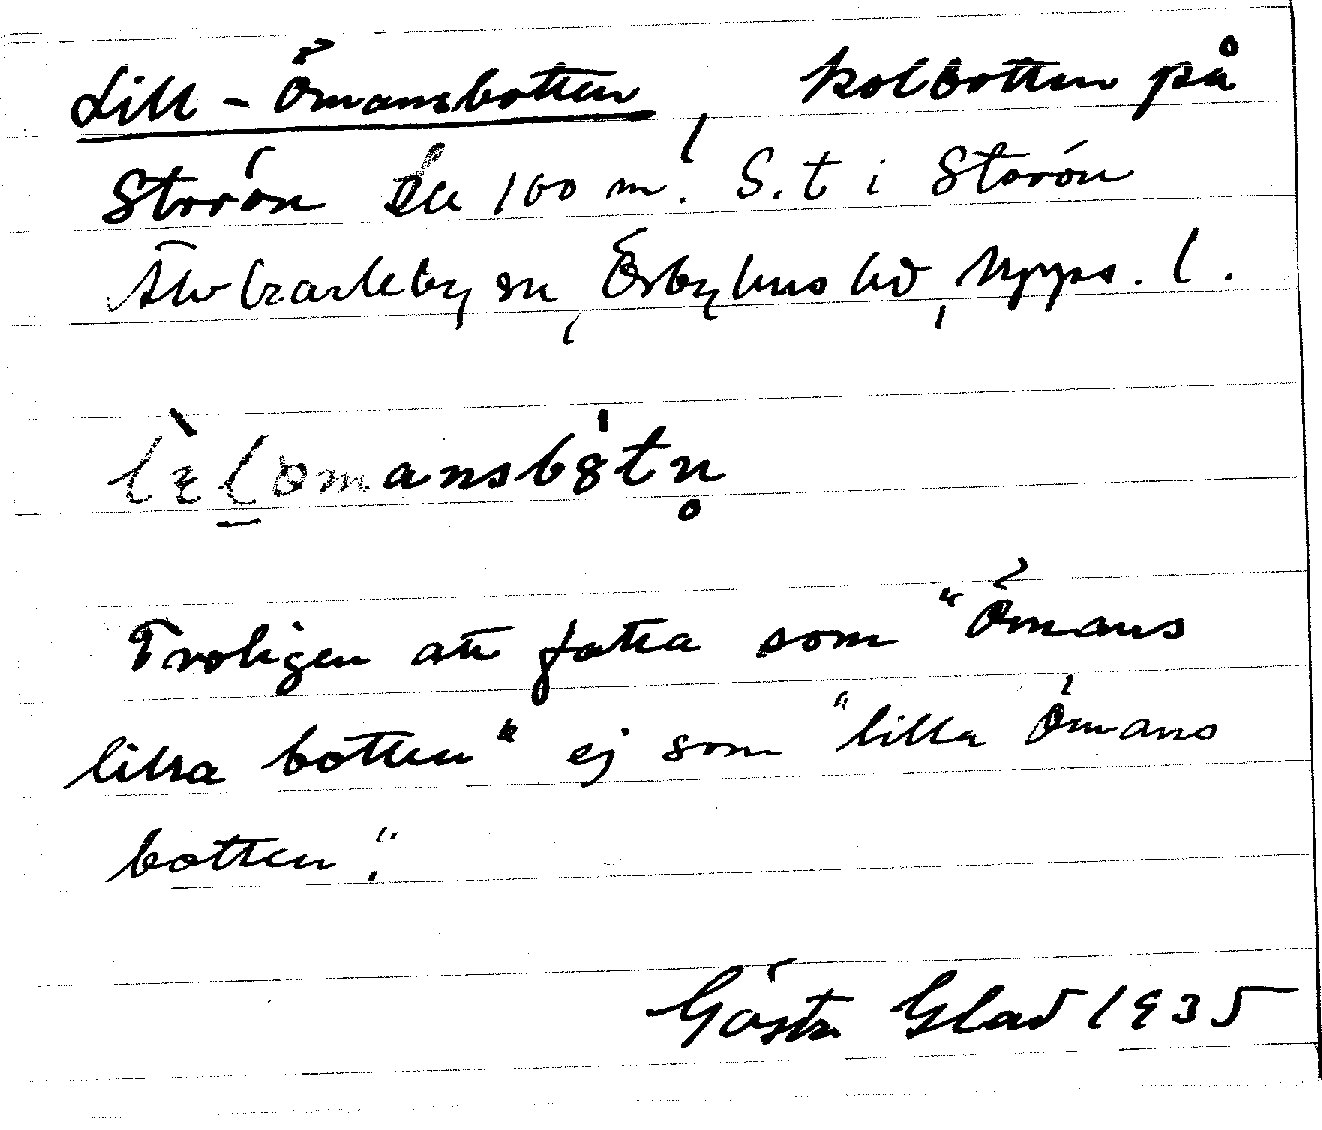 Lill-Ömansbotten, kolbotten på
Storön ca 100 m. S.t i Storön
Älvkarleby sn, Örbyhus hd, Upps. l.
lɪlomansbotn̥
Troligen att fatta som "Ömans
lilla botten" ej som "lilla Ömans
botten".
Gösta Glad 1935